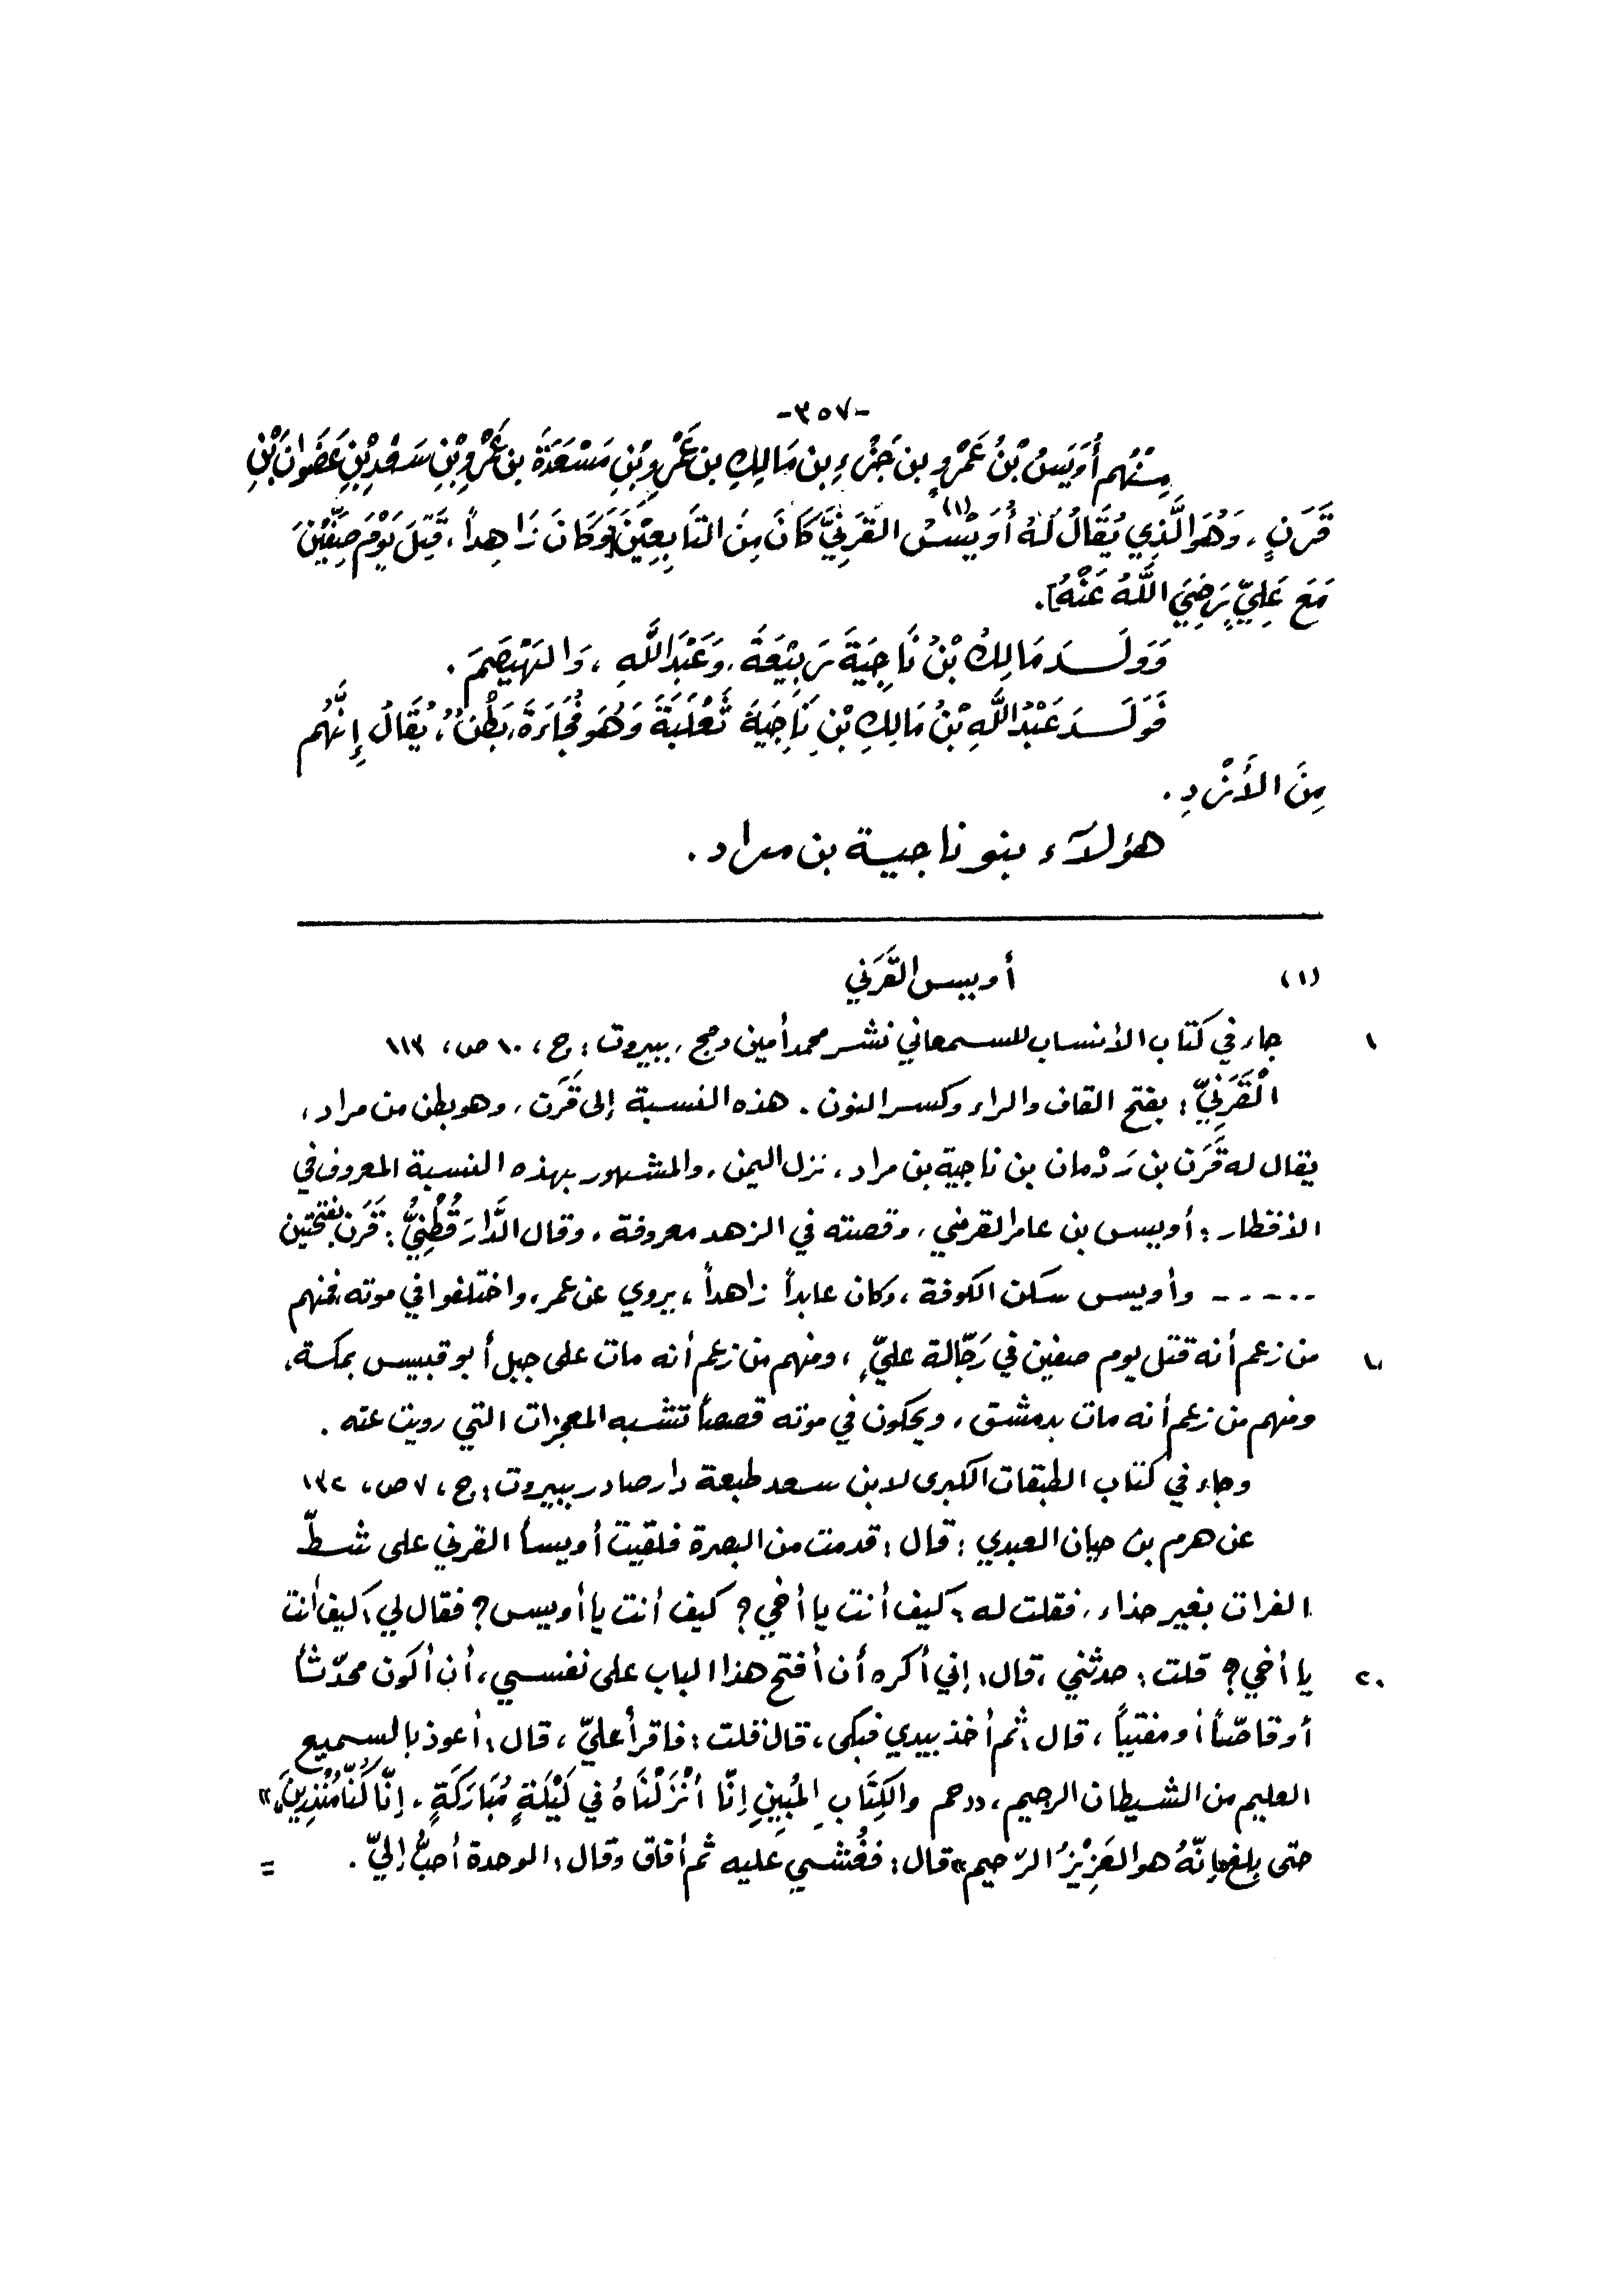 -٣٥٧-
مِنْهُم أُوَيسُ بْنُ عَمْرِو بن جَزْءِ بنِ مَالِكِ بن عَمْرِو بْنِ مَسْعَدَةَ بن عَمْرِو بْنِ سَعْدِ بْنِ عَصْوَانَ بْنِ
قَرَنٍ، وَهُوَ الَّذِي يُقَالُ لَهُ أُوَيْسُ القَرَنِيَّ (١) كَانَ مِنَ التَابِعِيْنَ [وَكَانَ زَاهِداً، قُتِلَ يَوْمَ صِفِّيْنَ
مَعَ عَلِيّ رَضِيَ اللَّهُ عَنْهُ].
وَوَلَـدَ مَالِكُ بْنُ نَاجِيَةَ رَبِيْعَةَ، وَعَبْدَ اللَّهِ، وَالهَيْصَمَ.
فَوَلَـدَ عَبْدُ اللَّهِ بْنُ مَالِكِ بْنِ نَاجِيَةَ ثَعْلَبَةَ وَهُوَ فُجَاءَةُ، بَطْنٌ، يُقَالُ إِنَّهُم
مِنَ الأَزْدِ.
هؤلآء بنو ناجية بن مراد.
(١) أويس القَرَني
١ جاء في كتاب الأنساب للسمعاني نشر محمد أمين دمج، بيروت: ج، ١٠ ص، ١١٣
الْقَرَنِيّ: بفتح القاف والراء وكسر النون. هذه النسبة إلى قَرَن، وهو بطن من مراد،
يقال له قَرَن بن رَدْمان بن ناجية بن مراد، نزل اليمن، والمشهور بهذه النسبة المعروف في
الأقطار: أويس بن عامر القرني، وقصته في الزهد معروفة، وقال الدَّارَقُطْنِيُّ: قَرَن بفتحتين
----- وأويس سكن الكوفة، وكان عابداً زاهداً، يروي عن عمر، واختلفوا في موته، فمنهم
١٠ من زعم أنه قتل يوم صفين في رَجّالة عليّ، ومنهم من زعم أنه مات على جبل أبو قبيس بمكة،
ومنهم من زعم أنه مات بدمشق، ويحكون في موته قصصاً تشبه المعجزات التي رويت عنه.
وجاء في كتاب الطبقات الكبرى لابن سعد طبعة دار صادر ببيروت: ج، ٧ ص، ١٣٢
عن هرم بن حيان العبدي: قال: قدمت من البصرة فلقيت أويساً القرني على شطّ
الفرات بغير حذاء، فقلت له: كيف أنت يا أخي؟ كيف أنت يا أويس؟ فقال لي: كيف أنت
٢٠ يا أخي؟ قلت: حدثني، قال: إني أكره أن أفتح هذا الباب على نفسي، أن أكون محدّثاً
أو قاصّاً أو مفتياً، قال: ثم أخذ بيدي فبكى، قال: فقلت: فاقرأ عليّ، قال: أعوذ بالسميع
العليم من الشيطان الرجيم، «حم والكِتَابِ المُبِينِ إنّا أنْزَلْنَاهُ في لَيْلَةٍ مُبَارَكَةٍ، إنّا كُنّا مُنْذِرِيْنَ»
حتى بلغ «إنّهُ هو العَزِيْزُ الرّحيم» قال: فغُشي عليه ثم أفاق وقال: الوحدة أحبُّ إليّ. =